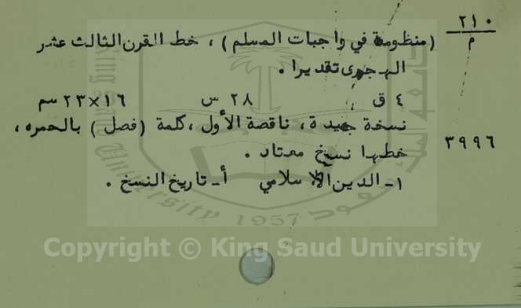 ٢١٠
م
(منظومة في واجبات المسلم) ، خط القرن الثالث عشر
الهجرى تقديرا .
٤ ق ٢٨ س ١٦×٢٣ سم
٣٩٩٦
نسخة جيدة ، ناقصة الأول ، كلمة (فصل) بالحمره ،
خطها نسخ معتاد .
١- الدين الاسلامي أ- تاريخ النسخ .
King Saud University
1957
Copyright © King Saud University